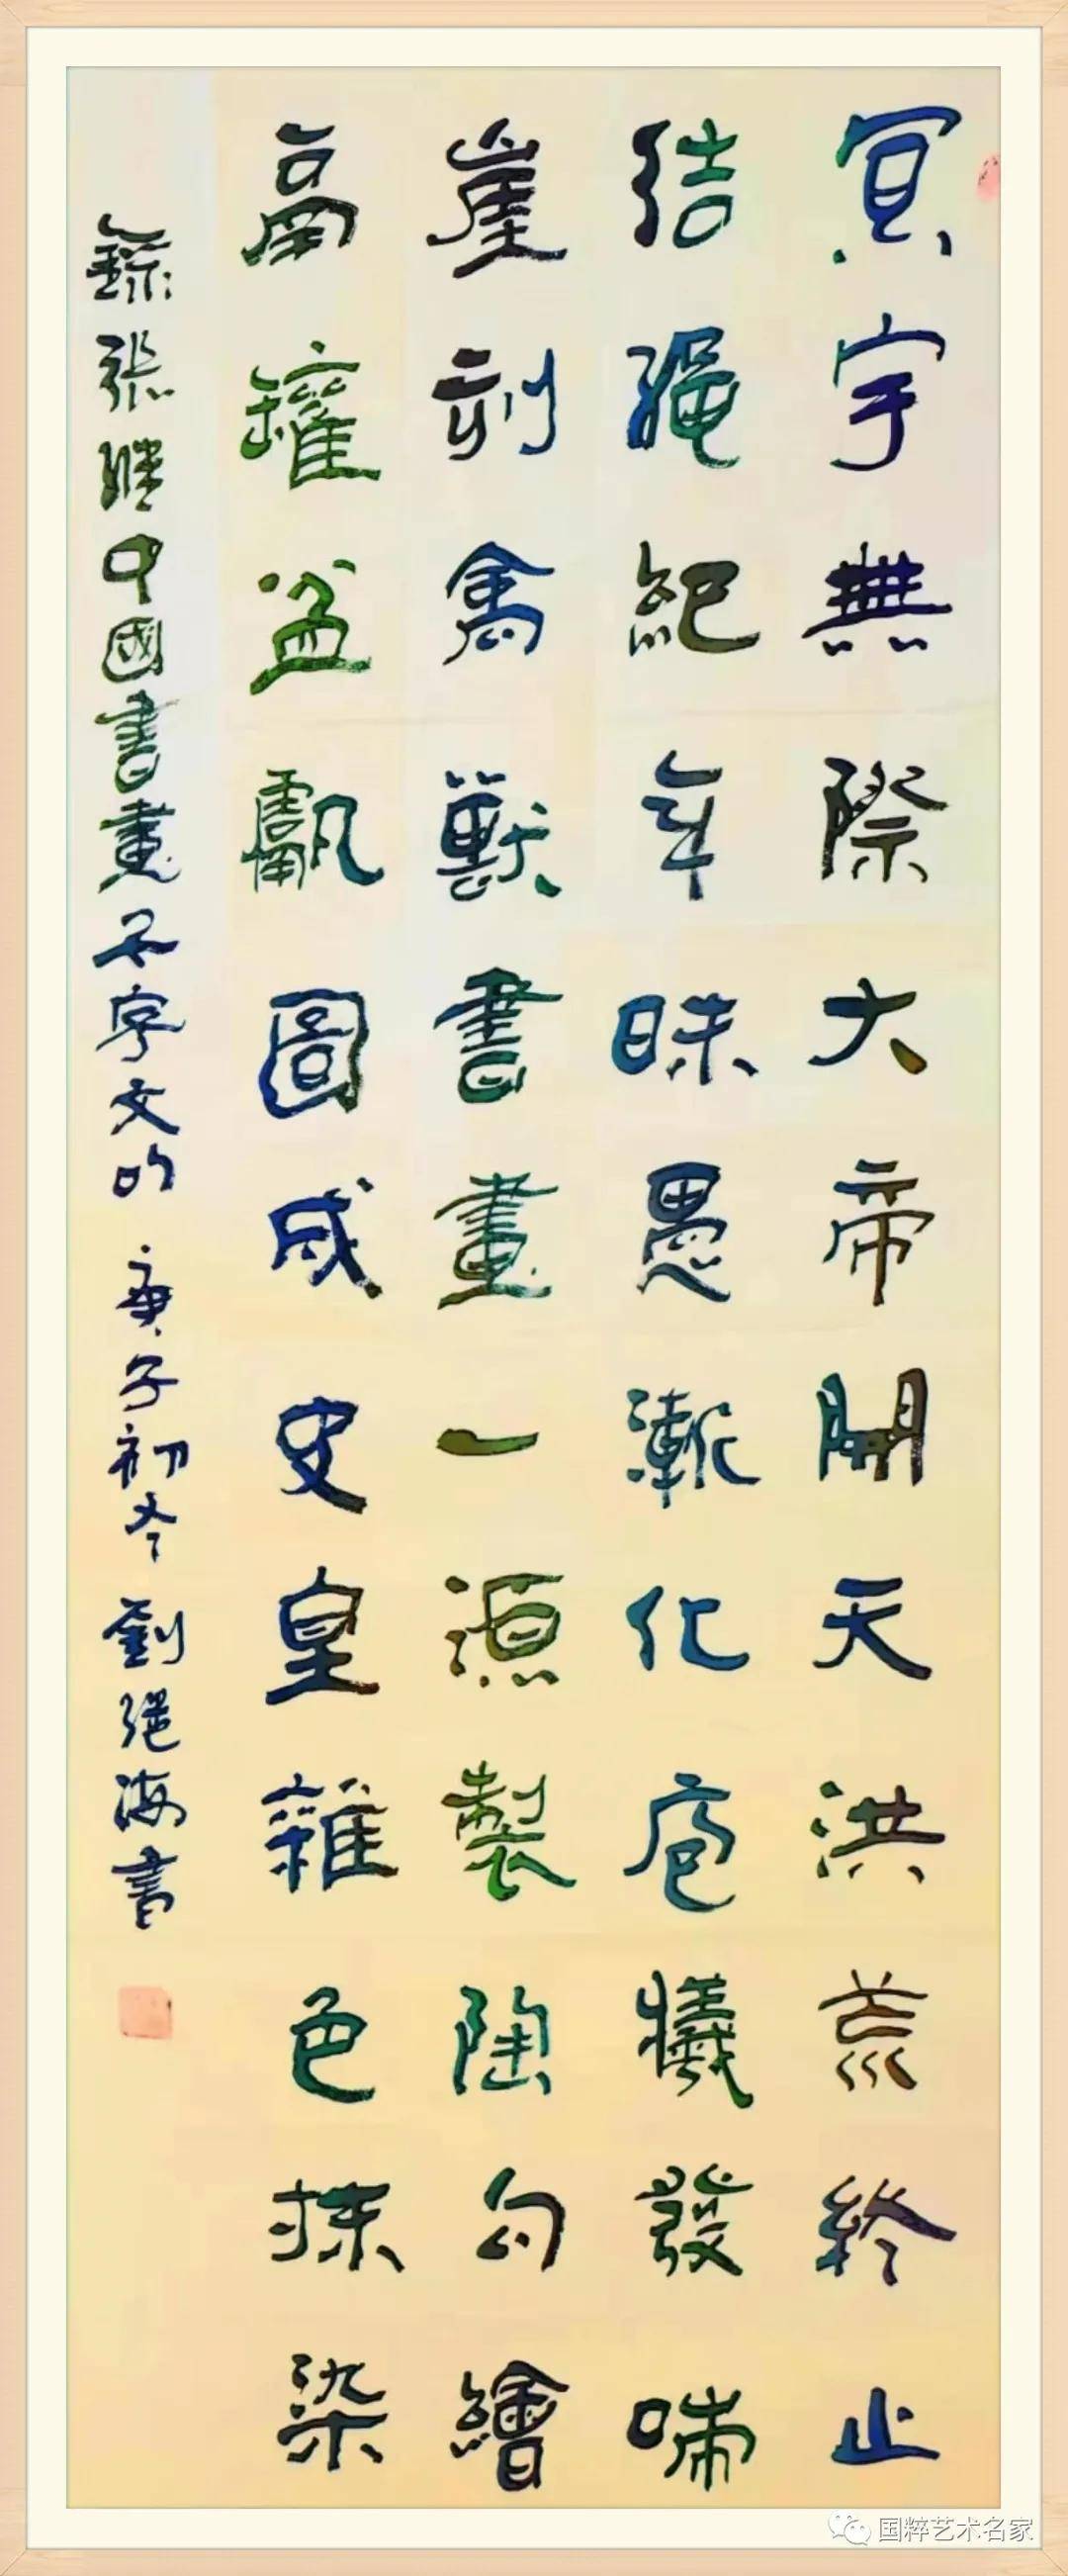 冥宇無際大帝開天洪荒終止
结繩紀年昧愚漸化庖犧發喃
崖刻禽獸書畫一源製陶勾繪
鬲罐盆甗圖成史皇雜色抹染
錄張勝中國書畫千字文句 庚子初冬 劉绝海書
国粹艺术名家